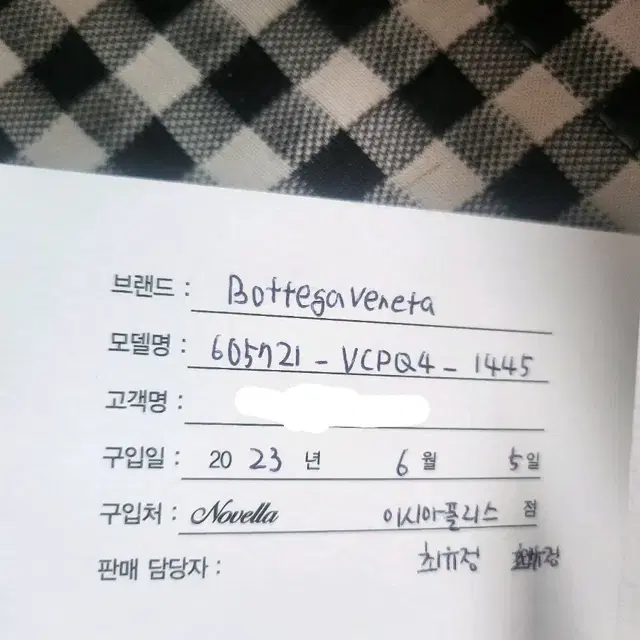 브랜드 : Bottega Veneta
모델명 : 605721 - VCPQ4 - 1445
고객명 :
구입일 : 2023 년 6 월 5 일
구입처 : Novella 이시아폴리스 점
판매 담당자 : 최유정